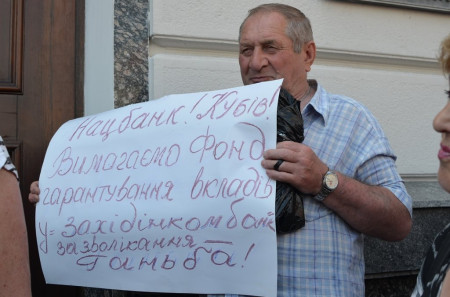 Нацбанк! Кубів!
Вимагаємо Фонд
гарантування вкладів
у західінкомбанк
за зволікання –
Ганьба!